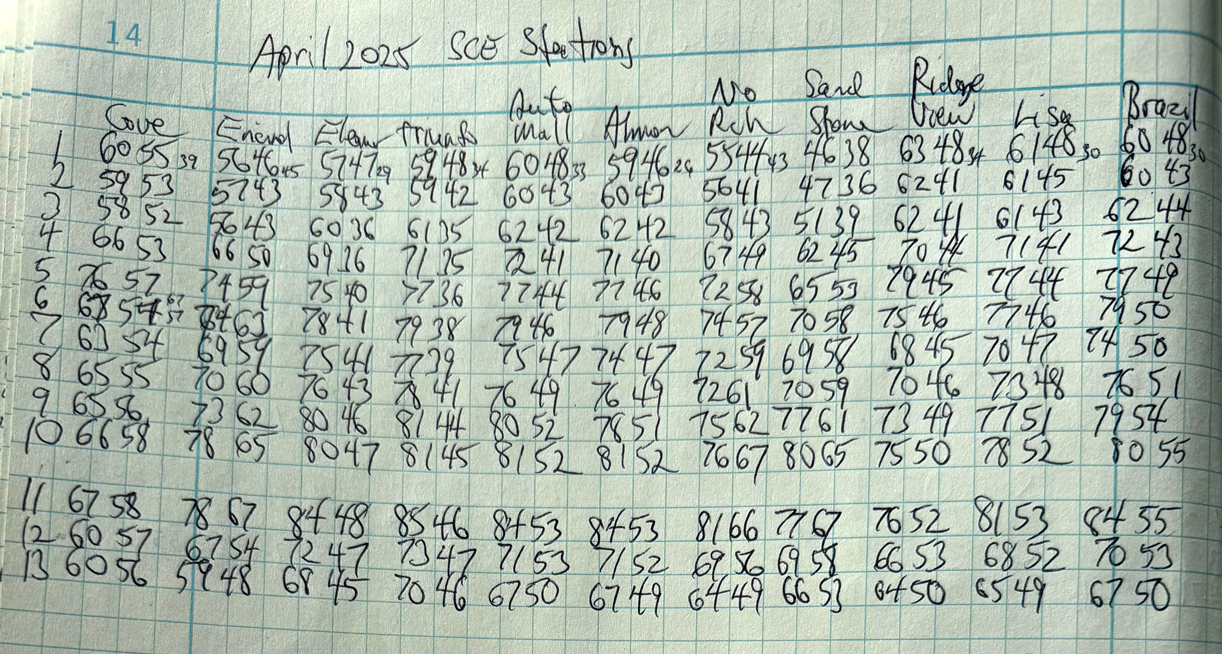 14
April 2025 SCE Stations
Cove Encinal Elean Triunfo Auto Mall Almon No Rch Sand Stone Ridge View Lisa Brazil
1 60 55 39 56 46 45 57 47 29 59 48 34 60 48 33 59 46 29 55 44 43 46 38 63 48 34 61 48 30 60 48 30
2 59 53 57 43 58 43 59 42 60 43 60 43 56 41 47 36 62 41 61 45 60 43
3 58 52 56 43 60 36 61 35 62 42 62 42 58 43 51 39 62 41 61 43 62 44
4 66 53 66 50 69 36 71 35 72 41 71 40 67 49 62 45 70 44 71 41 72 43
5 76 57 74 59 75 40 77 36 77 44 77 46 72 58 65 53 79 45 77 44 77 49
6 68 54 63 78 41 79 38 79 46 79 48 74 57 70 58 75 46 77 46 79 50
7 63 54 69 59 75 41 77 39 75 47 74 47 72 59 69 58 68 45 70 47 74 50
8 65 55 70 60 76 43 78 41 76 49 76 49 72 61 70 59 70 46 73 48 76 51
9 65 56 73 62 80 46 81 44 80 52 78 51 75 62 77 61 73 49 77 51 79 54
10 66 58 78 65 80 47 81 45 81 52 81 52 76 67 80 65 75 50 78 52 80 55
11 67 58 78 67 84 48 85 46 84 53 84 53 81 66 77 67 76 52 81 53 84 55
12 60 57 67 54 72 47 73 47 71 53 71 52 69 56 69 58 66 53 68 52 70 53
13 60 56 59 48 68 45 70 46 67 50 67 49 64 49 66 53 64 50 65 49 67 50